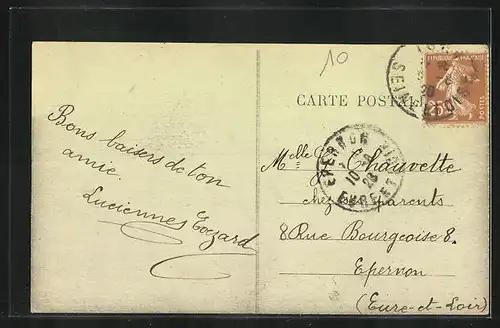 10
REPUBLIQUE FRANÇAISE
POSTES
SEINE
CARTE POSTALE
EPERNON
10
EURE ET
Bons baisers de ton
amie.
Luciennes
Melle G. Chauvette
chez ses parents
8 Rue Bourgeoise 8.
Epernon
(Eure-et-Loir)